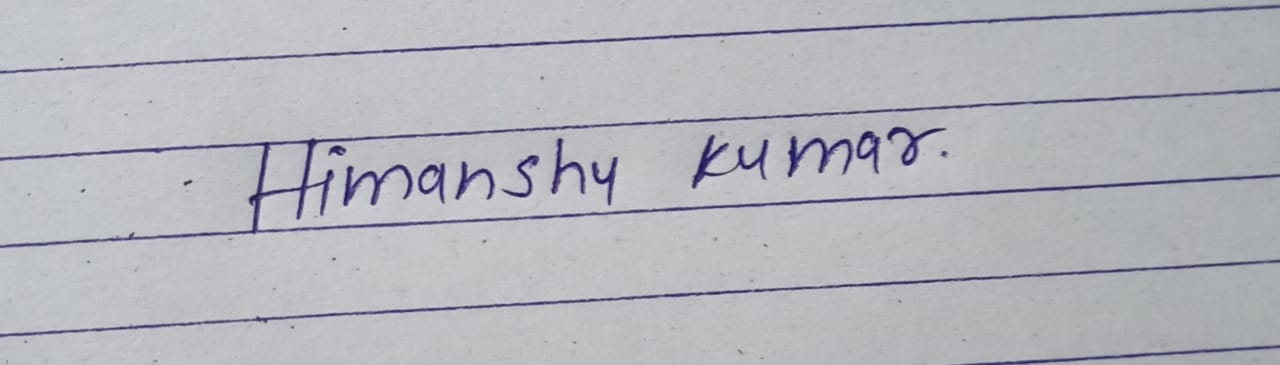 Himanshu kumar.